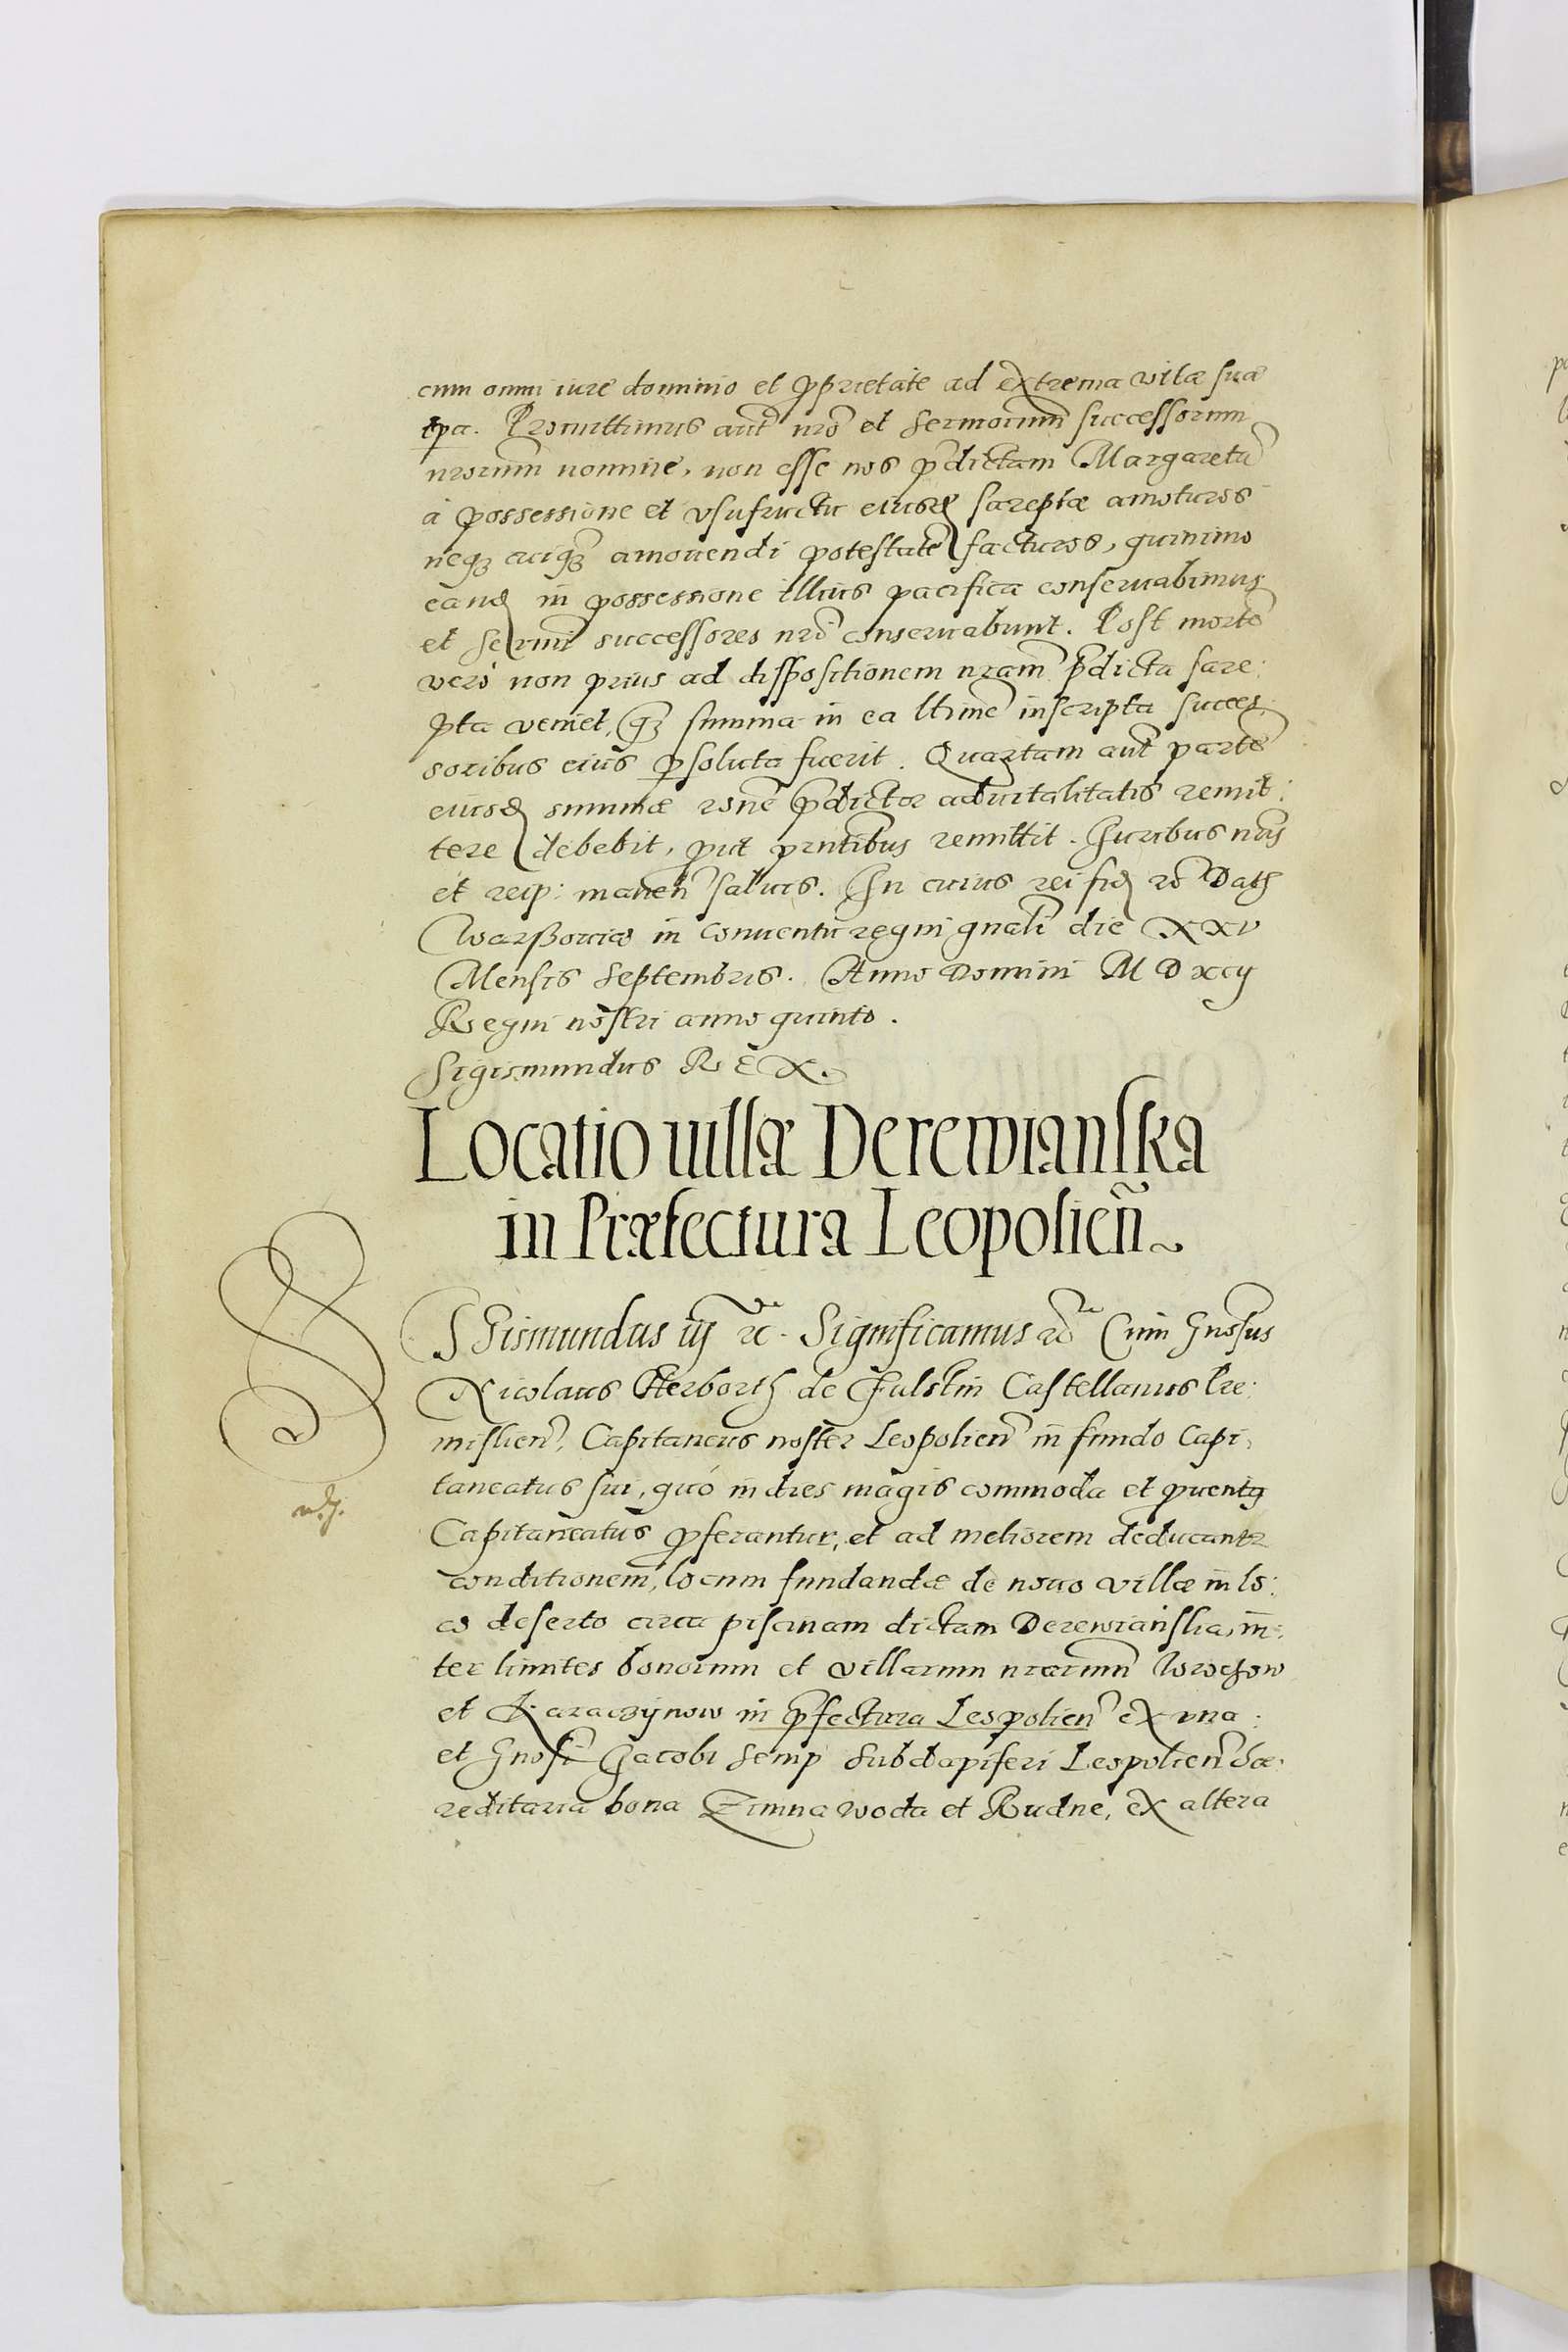 cum omni iure dominio et ꝓprietate ad extrema vitæ suæ
tpa. Promittimus aut̃ nr̃o et sermorum̃ successorum
nrorum̃ nomine, non esse nos p̃dictam Margaretã
á possessione et vsufructu eiusd sareptæ amoturos
neqꝫ cuiqꝫ amouendi potestatẽ facturos, quinimo
eand in possessione illius pacifica conseruabimus
et sermi successores nrĩ conseruabunt. Post mortẽ
veró non prius ad dispositionem nram̃ p̃dicta sare:
pta veniet, qꝫ summa in ea ltimẽ inscripta succes:
soribus eius ꝑsoluta fuerit. Quartam aut̃ partẽ
eiusd summæ ronẽ p̃dictæ aduitalitatis remit:
tere debebit, ꝓut pntibus remittit. Iuribus nris
et reip: manen̄ saluis. In cuius rei fid rõ Datꝭ
Warßouiæ in conuentu regni gnalĩ die XXV
Mensis Septembris. Anno Domini M D xcij
Regni nostri anno quinto.
Sigismundus REX.
Locatio uillæ Derewianska
in Præfectura Leopolien̄
SGismundus iij rc. Significamus rõ Cum Gnosus
Nicolaus Herborth de Fulstin Castellanus Pre:
mislien̄, Capitaneus noster Leopolien̄ in fundo Capi:
taneatus sui, quó in dies magis commoda et ꝓuentꝰ
Capitaneatus ꝓferantur, et ad meliorem deducantr
conditionem, locum fundandæ de nouo villæ in lo:
co deserto circa piscinam dictam Derewianska, in:
ter limites bonorum et villarum nrarum̃ Wroczow
et Karaczÿnow in p̃fectura Leopolien̄ ex vna:
et Gnosĩ Jacobi Semp Subdapiferi Leopolien̄ hæ:
reditaria bona Zimna woda et Rudne, ex altera